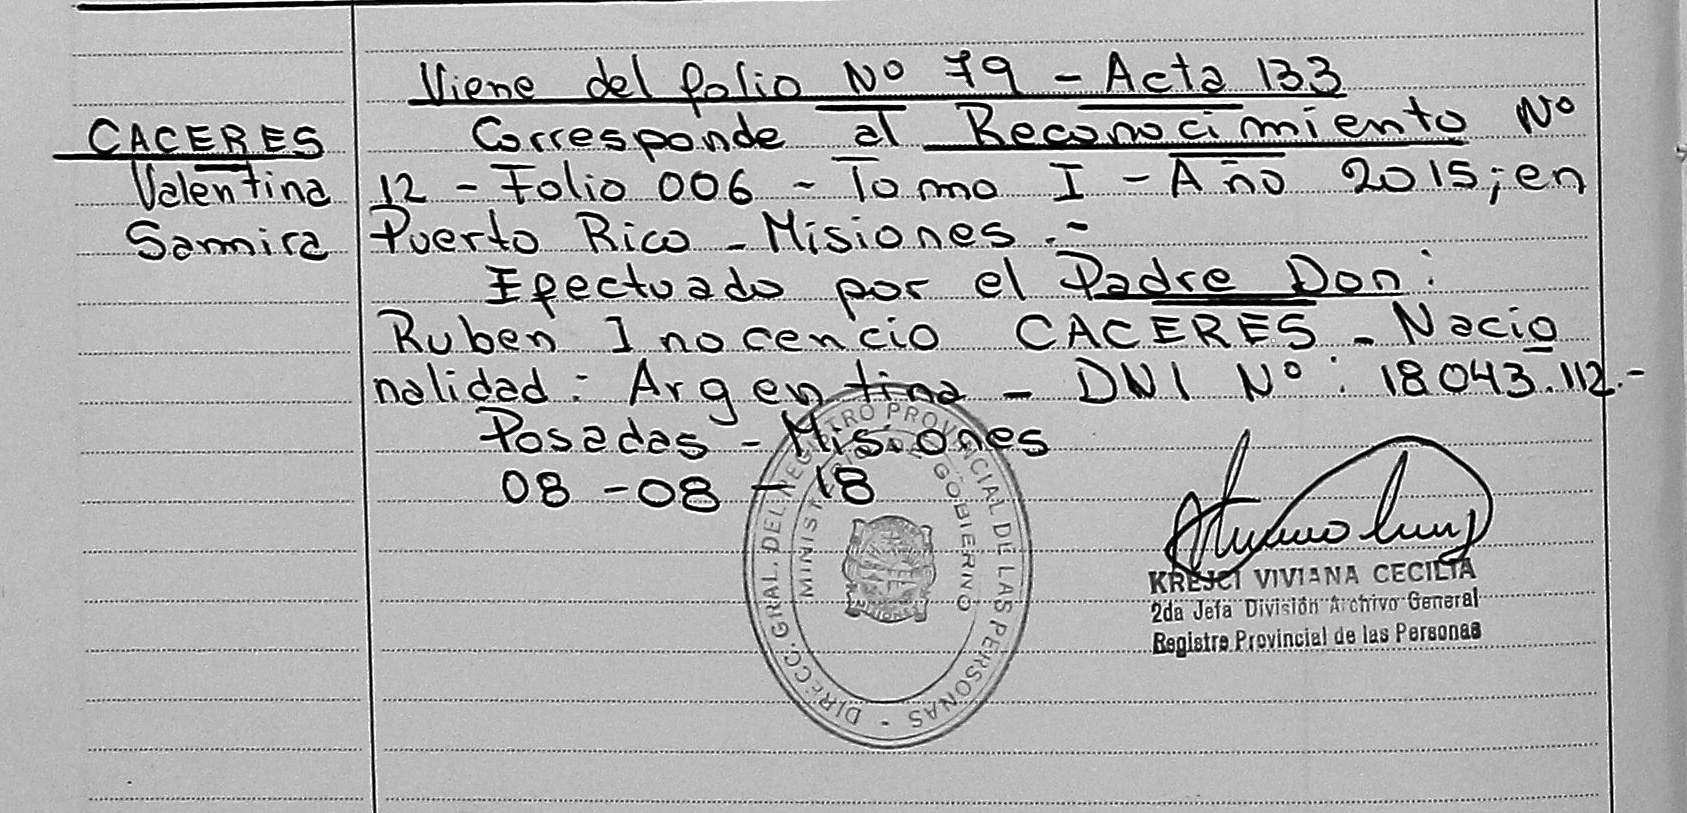 Viene del folio Nº 79 - Acta 133
CACERES
Valentina
Samira
Corresponde al Reconocimiento Nº
12 - Folio 006 - Tomo I - Año 2015; en
Puerto Rico - Misiones.-
Efectuado por el Padre Don:
Ruben Inocencio CACERES - Nacio
nalidad: Argentina - DNI Nº: 18043.112.-
Posadas - Misiones
08-08-18
DIRECC. GRAL. DEL REGISTRO PROVINCIAL DE LAS PERSONAS -
MINISTERIO DE GOBIERNO
KREJCI VIVIANA CECILIA
2da Jefa División Archivo General
Registro Provincial de las Personas